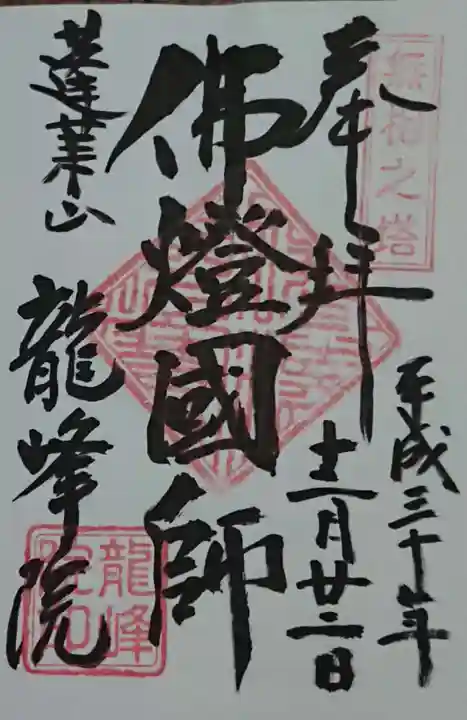 奉拝
無相之塔
平成三十年
十二月廿二日
佛燈國師
蓬莱山
龍峰院
龍峰
院印